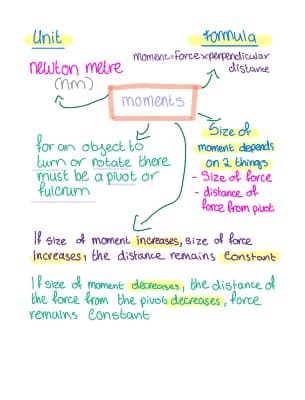 Unit
Formula
moment=Force×perpendicular
distance
newton metre
(nm)
moments
for an object to
turn or rotate there
must be a pivot or
fulcrum
Size of
moment depends
on 2 things
- Size of force
- distance of
force from pivot
If size of moment increases, size of force
increases, the distance remains constant
If size of moment decreases, the distance of
the force from the pivot decreases, force
remains constant